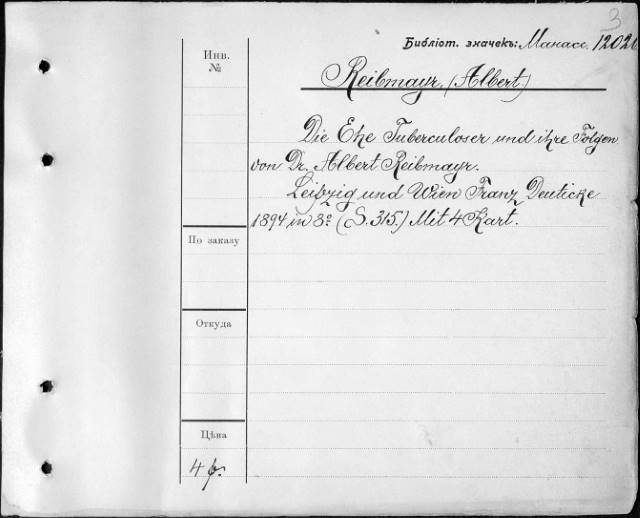 3
Библіот. значекъ: Манасс. 12026
Инв.
№
Reibmayr. (Albert.)
Die Ehe Tuberculoser und ihre Folgen
von Dr. Albert Reibmayr.
Leipzig und Wien Franz Deuticke
1894 in 8º (S. 315.) Mit 4 Kart.
По заказу
Откуда
Цѣна
4 р.